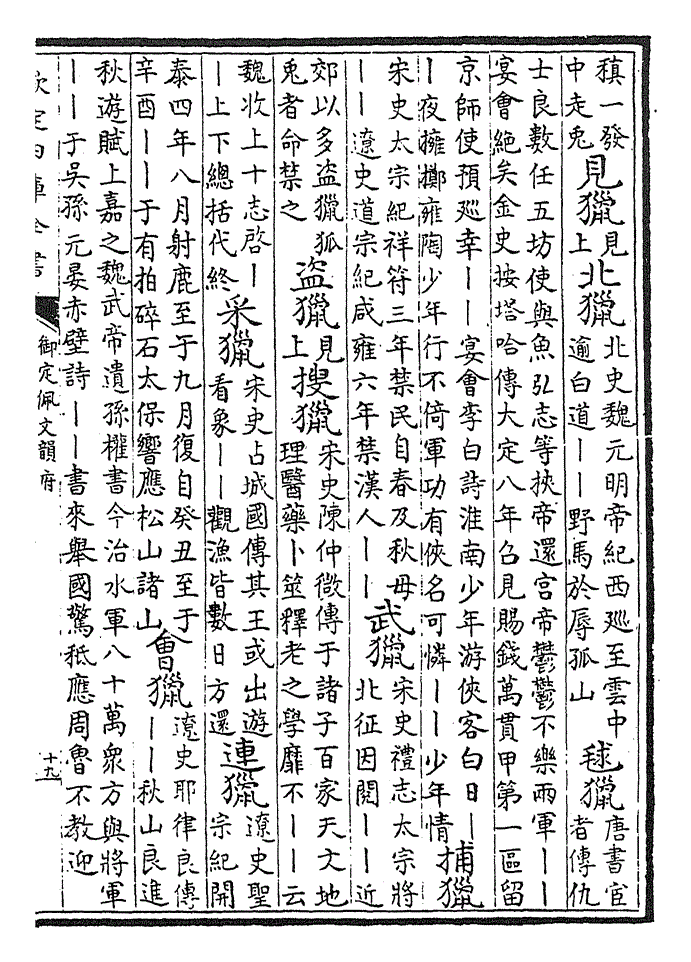 稹一發
中走兎
見獵
見
上
北獵
北史魏元明帝紀西廵至雲中
逾白道——野馬於辱孤山
毬獵
唐書宦
者傳仇
士良數任五坊使與魚弘志等挾帝還宫帝鬱鬱不樂兩軍——
宴會絶矣金史按塔哈傳大定八年召見賜錢萬貫甲第一區留
京師使預廵幸——宴會李白詩淮南少年游俠客白日—
—夜擁擲雍陶少年行不倚軍功有俠名可憐——少年情
捕獵
宋史太宗紀祥符三年禁民自春及秋毋
——遼史道宗紀咸雍六年禁漢人——
武獵
宋史禮志太宗將
北征因閱——近
郊以多盗獵狐
兎者命禁之
盜獵
見
上
搜獵
宋史陳仲微傳于諸子百家天文地
理醫藥卜筮釋老之學靡不——云
魏收上十志啓—
—上下總括代終
采獵
宋史占城國傳其王或出遊
看象——觀漁皆數日方還
連獵
遼史聖
宗紀開
泰四年八月射鹿至于九月復自癸丑至于
辛酉——于有拍碎石太保響應松山諸山
會獵
遼史耶律良傳
——秋山良進
秋遊賦上嘉之魏武帝遺孫權書今治水軍八十萬衆方與將軍
——于吳孫元晏赤壁詩——書來舉國驚秪應周魯不教迎
欽定四庫全書
御定佩文韻府
十九